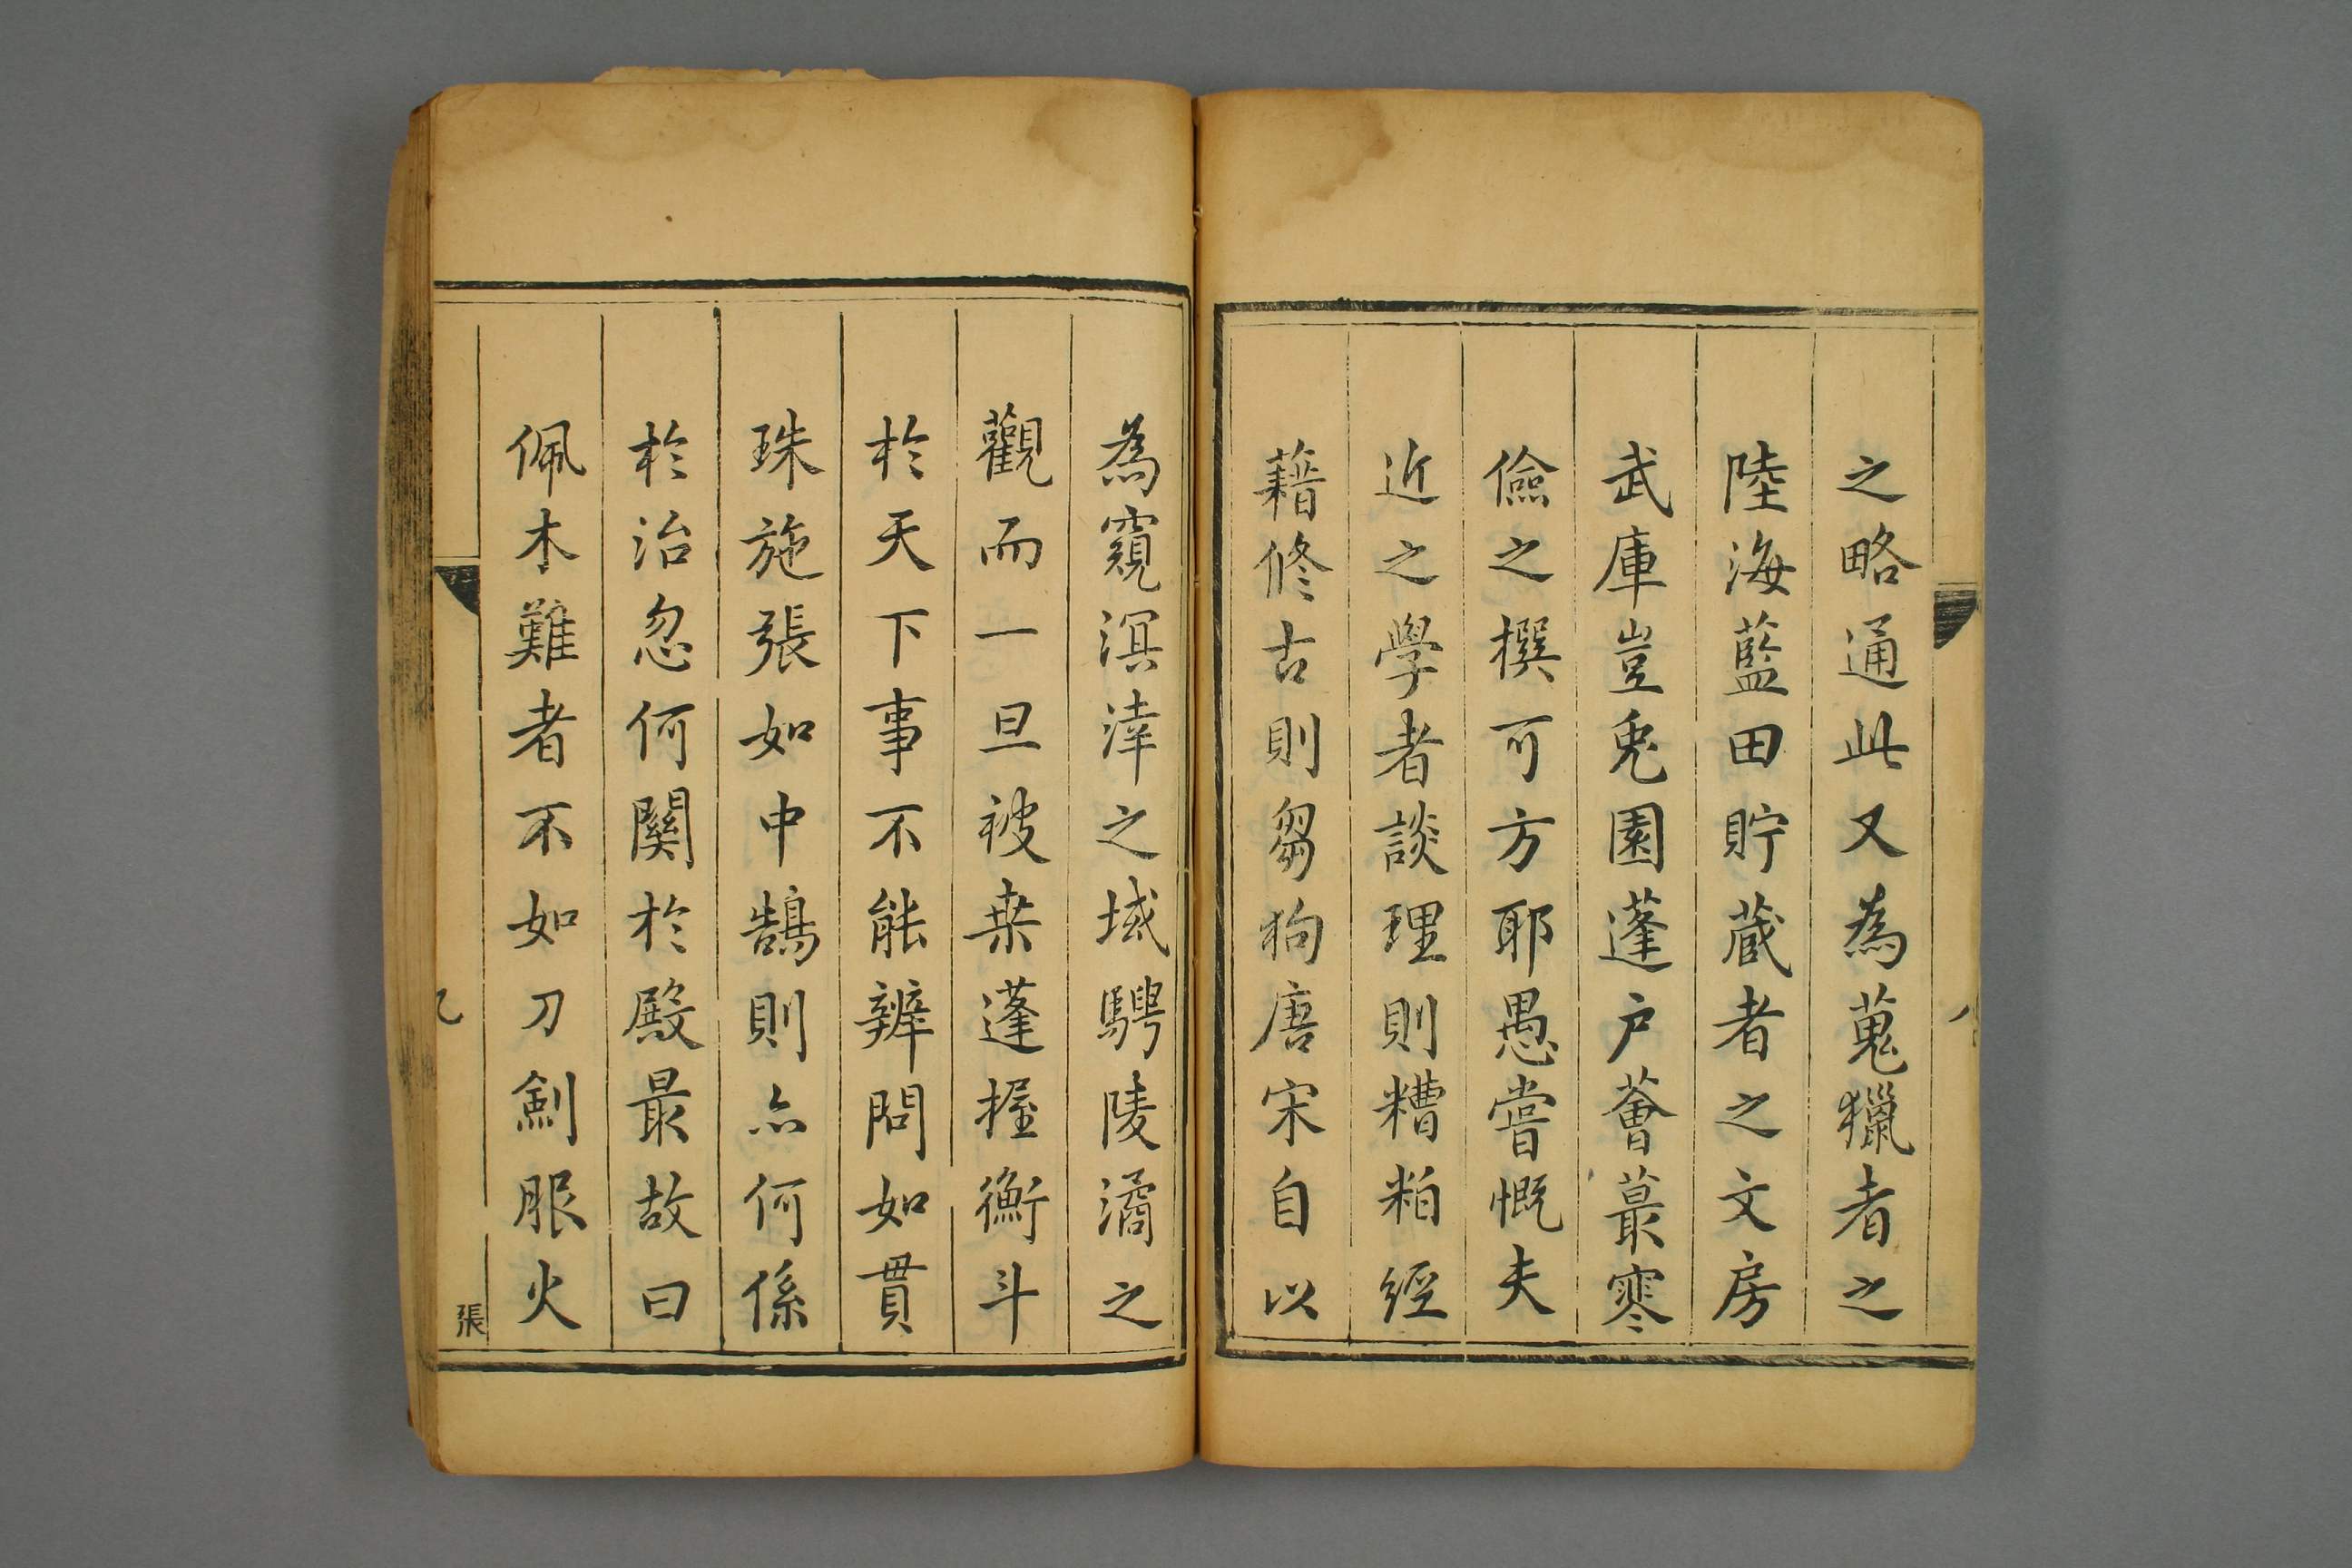 之略通此又為蒐獵者之
陸海藍田貯蔵者之文房
武庫豈兎園蓬户薈蕞寒
儉之撰可方耶愚嘗慨夫
近之學者談理則糟粕經
藉修古則芻狗唐宋自以
為窺溟涬之域騁陵潏之
觀而一旦被桒蓬握衡斗
於天下事不能辨問如貫
珠施張如中鵠則亦何係
於治忽何関於殿最故曰
佩木難者不如刀劍服火
張